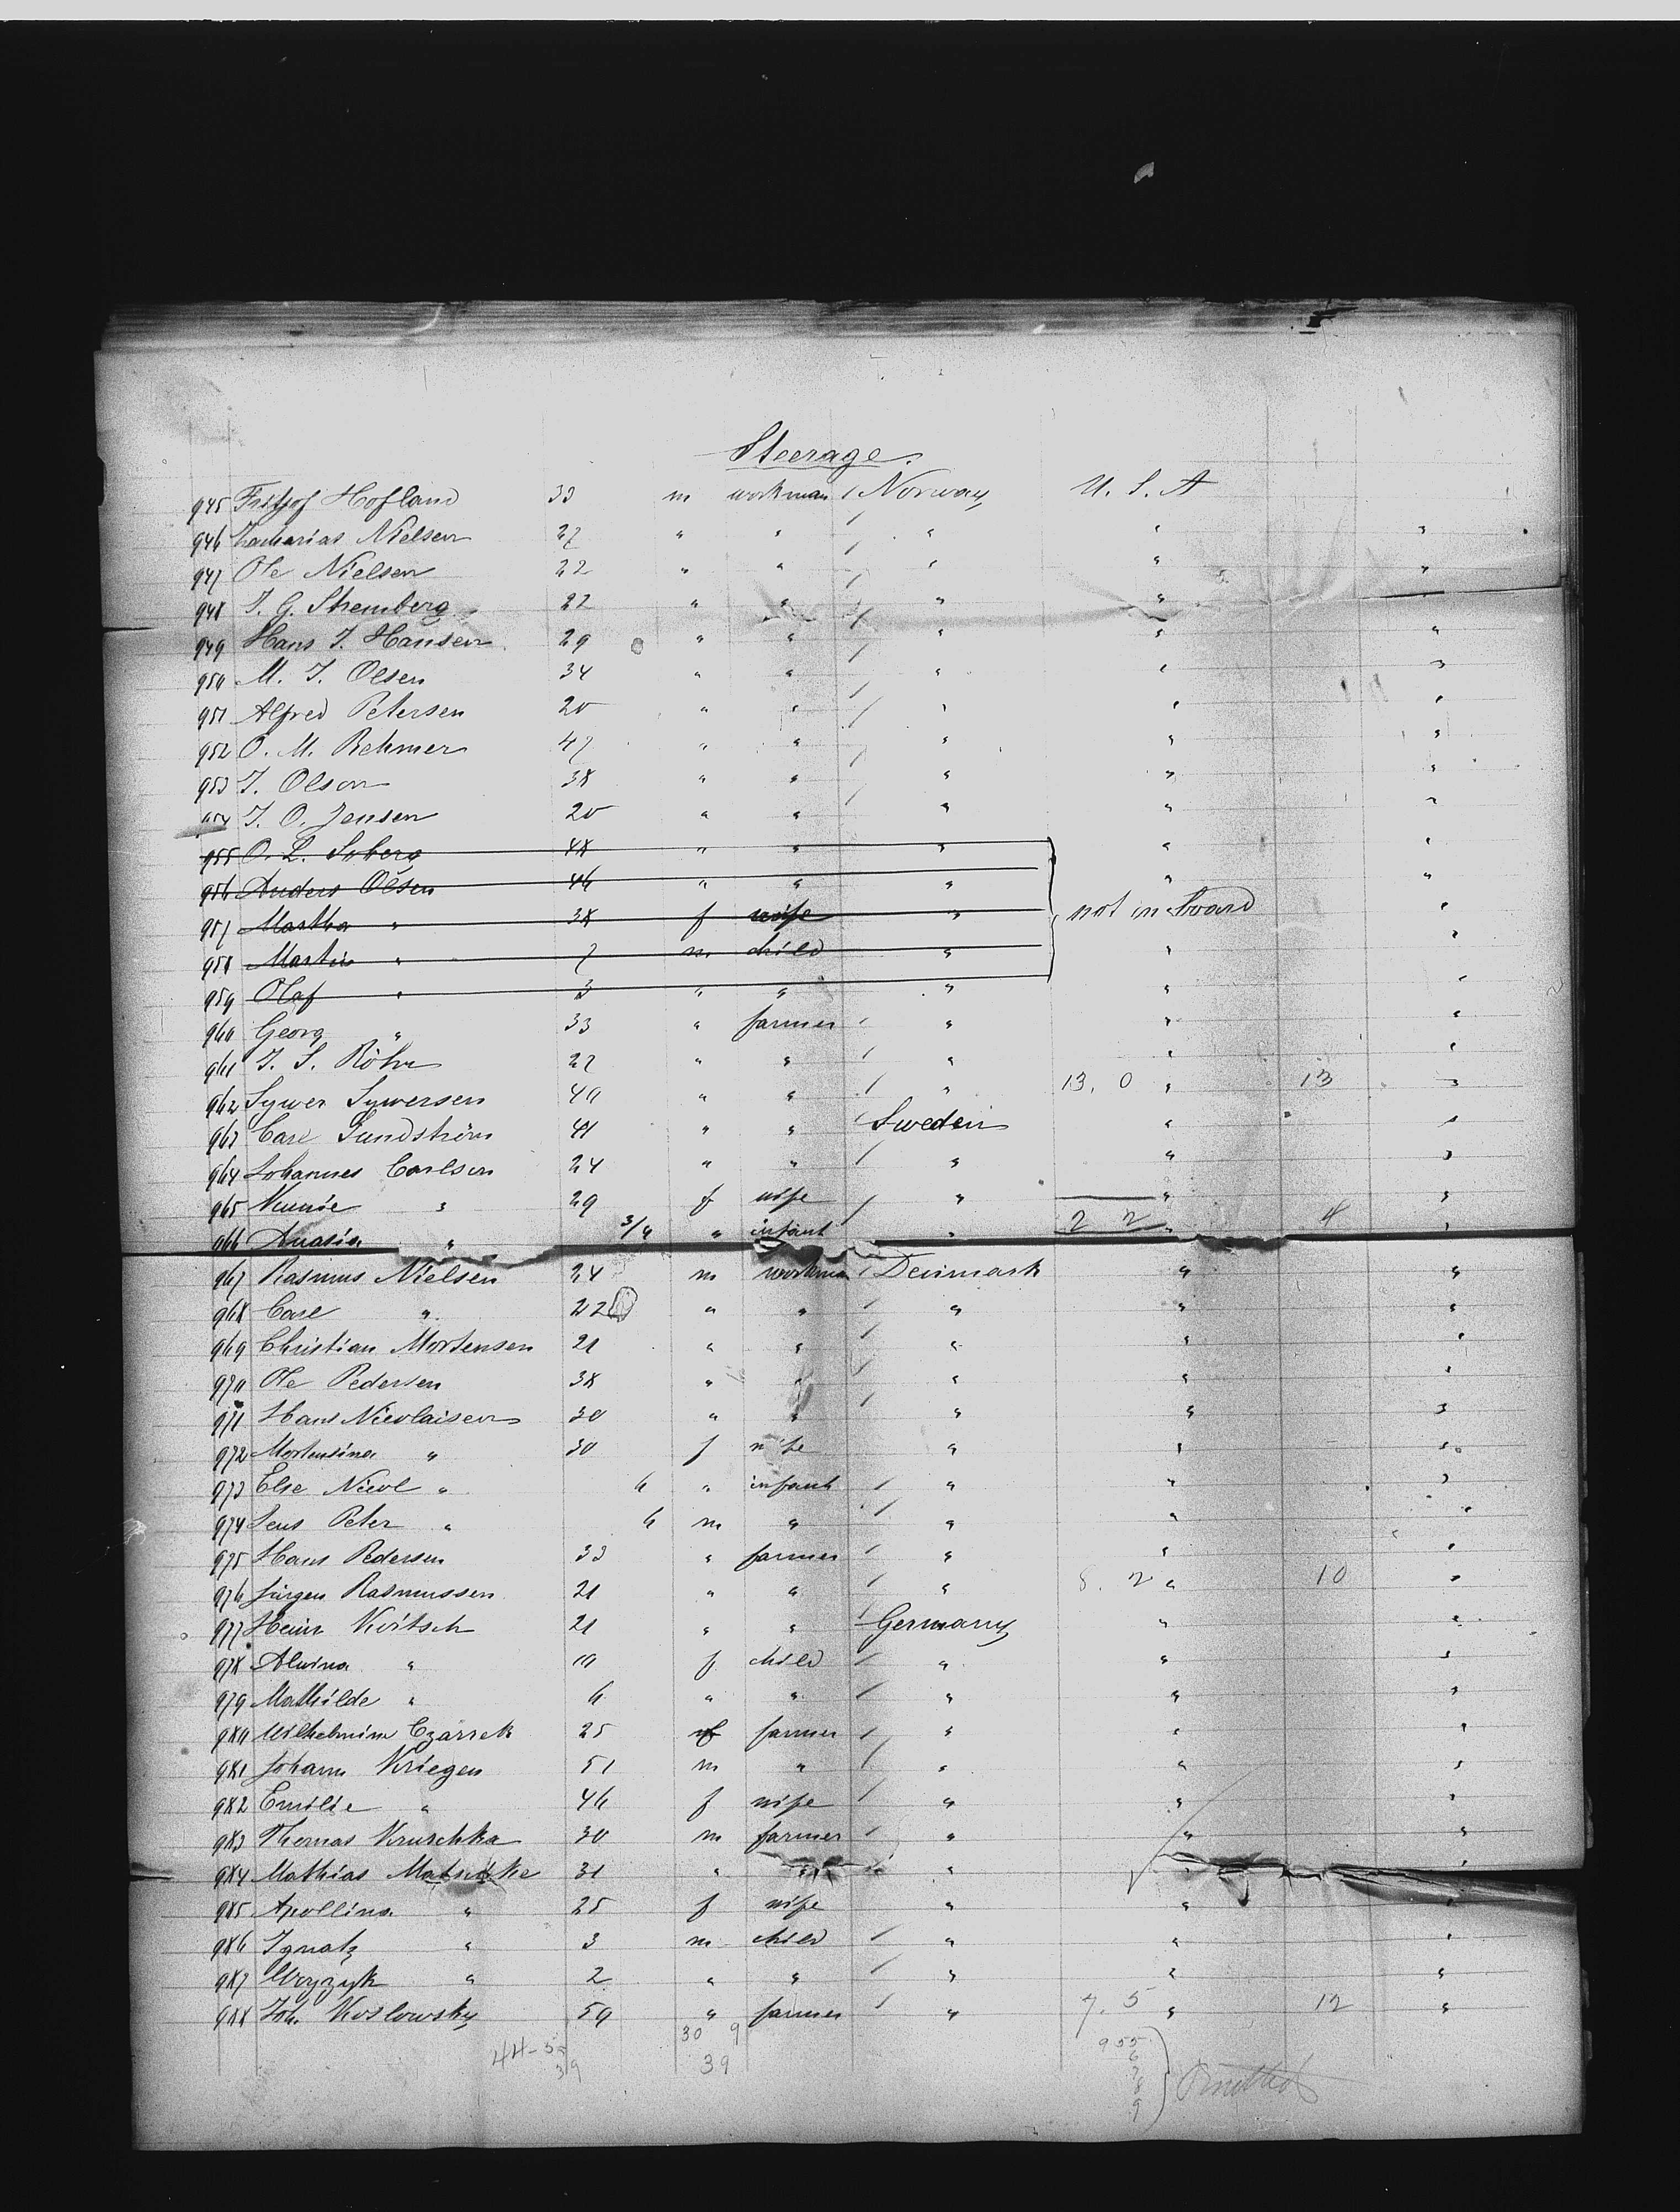 Steerage.
945 Fritjof Hofland 33 m workman / Norway U. S. A
946 Zacharias Nielsen 27 " " / " "
947 Ole Nielsen 22 " " / " " "
948 J. G. Stremberg 22 " " / " " "
949 Hans J. Hansen 29 " " / " " "
950 M. J. Olsen 34 " " / " " "
951 Alfred Petersen 20 " " / " " "
952 O. M. Rehmer 47 " " / " " "
953 J. Olson 38 " " / " " "
954 J. O. Jensen 20 " " / " " "
955 O. L. Soberg 48 " " " " "
956 Anders Olsen 46 " " " " "
957 Martha " 38 f wife " not in board "
958 Martin " 7 m child " " "
959 Olaf " 3 " " " " "
960 Georg " 33 " farmer / " " "
961 J. S. Röhr 27 " " / " " "
962 Sywer Sywersen 40 " " / " 13. 0 " 13 "
963 Carl Sundström 41 " " / Sweden " "
964 Johannes Carlsen 24 " " / " " "
965 " 29 f wife / " " "
966 " 3/4 " infant " 2 2 " 4 "
967 Rasmus Nielsen 24 m workman / Denmark " "
968 Carl " 22 " " / " " "
969 Christian Mortensen 21 " " / " " "
970 Ole Pedersen 38 " " / " " "
971 Hans Nicolaisen 30 " " / " " "
972 Mortensina " 30 f wife " " "
973 Else Nicol " 6 " infant / " " "
974 Jens Peter " 6 m " / " " "
975 Hans Pedersen 33 " farmer / " " "
976 Jürgen Rasmussen 21 " " / " 8. 2 " 10 "
977 Heinr Koitsch 21 " " / Germany " "
978 Alwina " 10 f child / " " "
979 Mathilde " 6 " " / " " "
980 Wilhelmine Czarrek 25 f farmer / " " "
981 Johann Kriegen 51 m " / " " "
982 Emilie " 46 f wife / " " "
983 Thomas Kruschka 30 m farmer / " " "
984 Mathias 31 " " " " "
985 Apollina " 25 f wife " " "
986 Ignatz " 3 m child / " " "
987 " 2 " " / " " "
988 Joh. Koslowsky 59 " farmer / " 7. 5 " 12 "
44-5 30 9 955
39 39 6
7
8
9